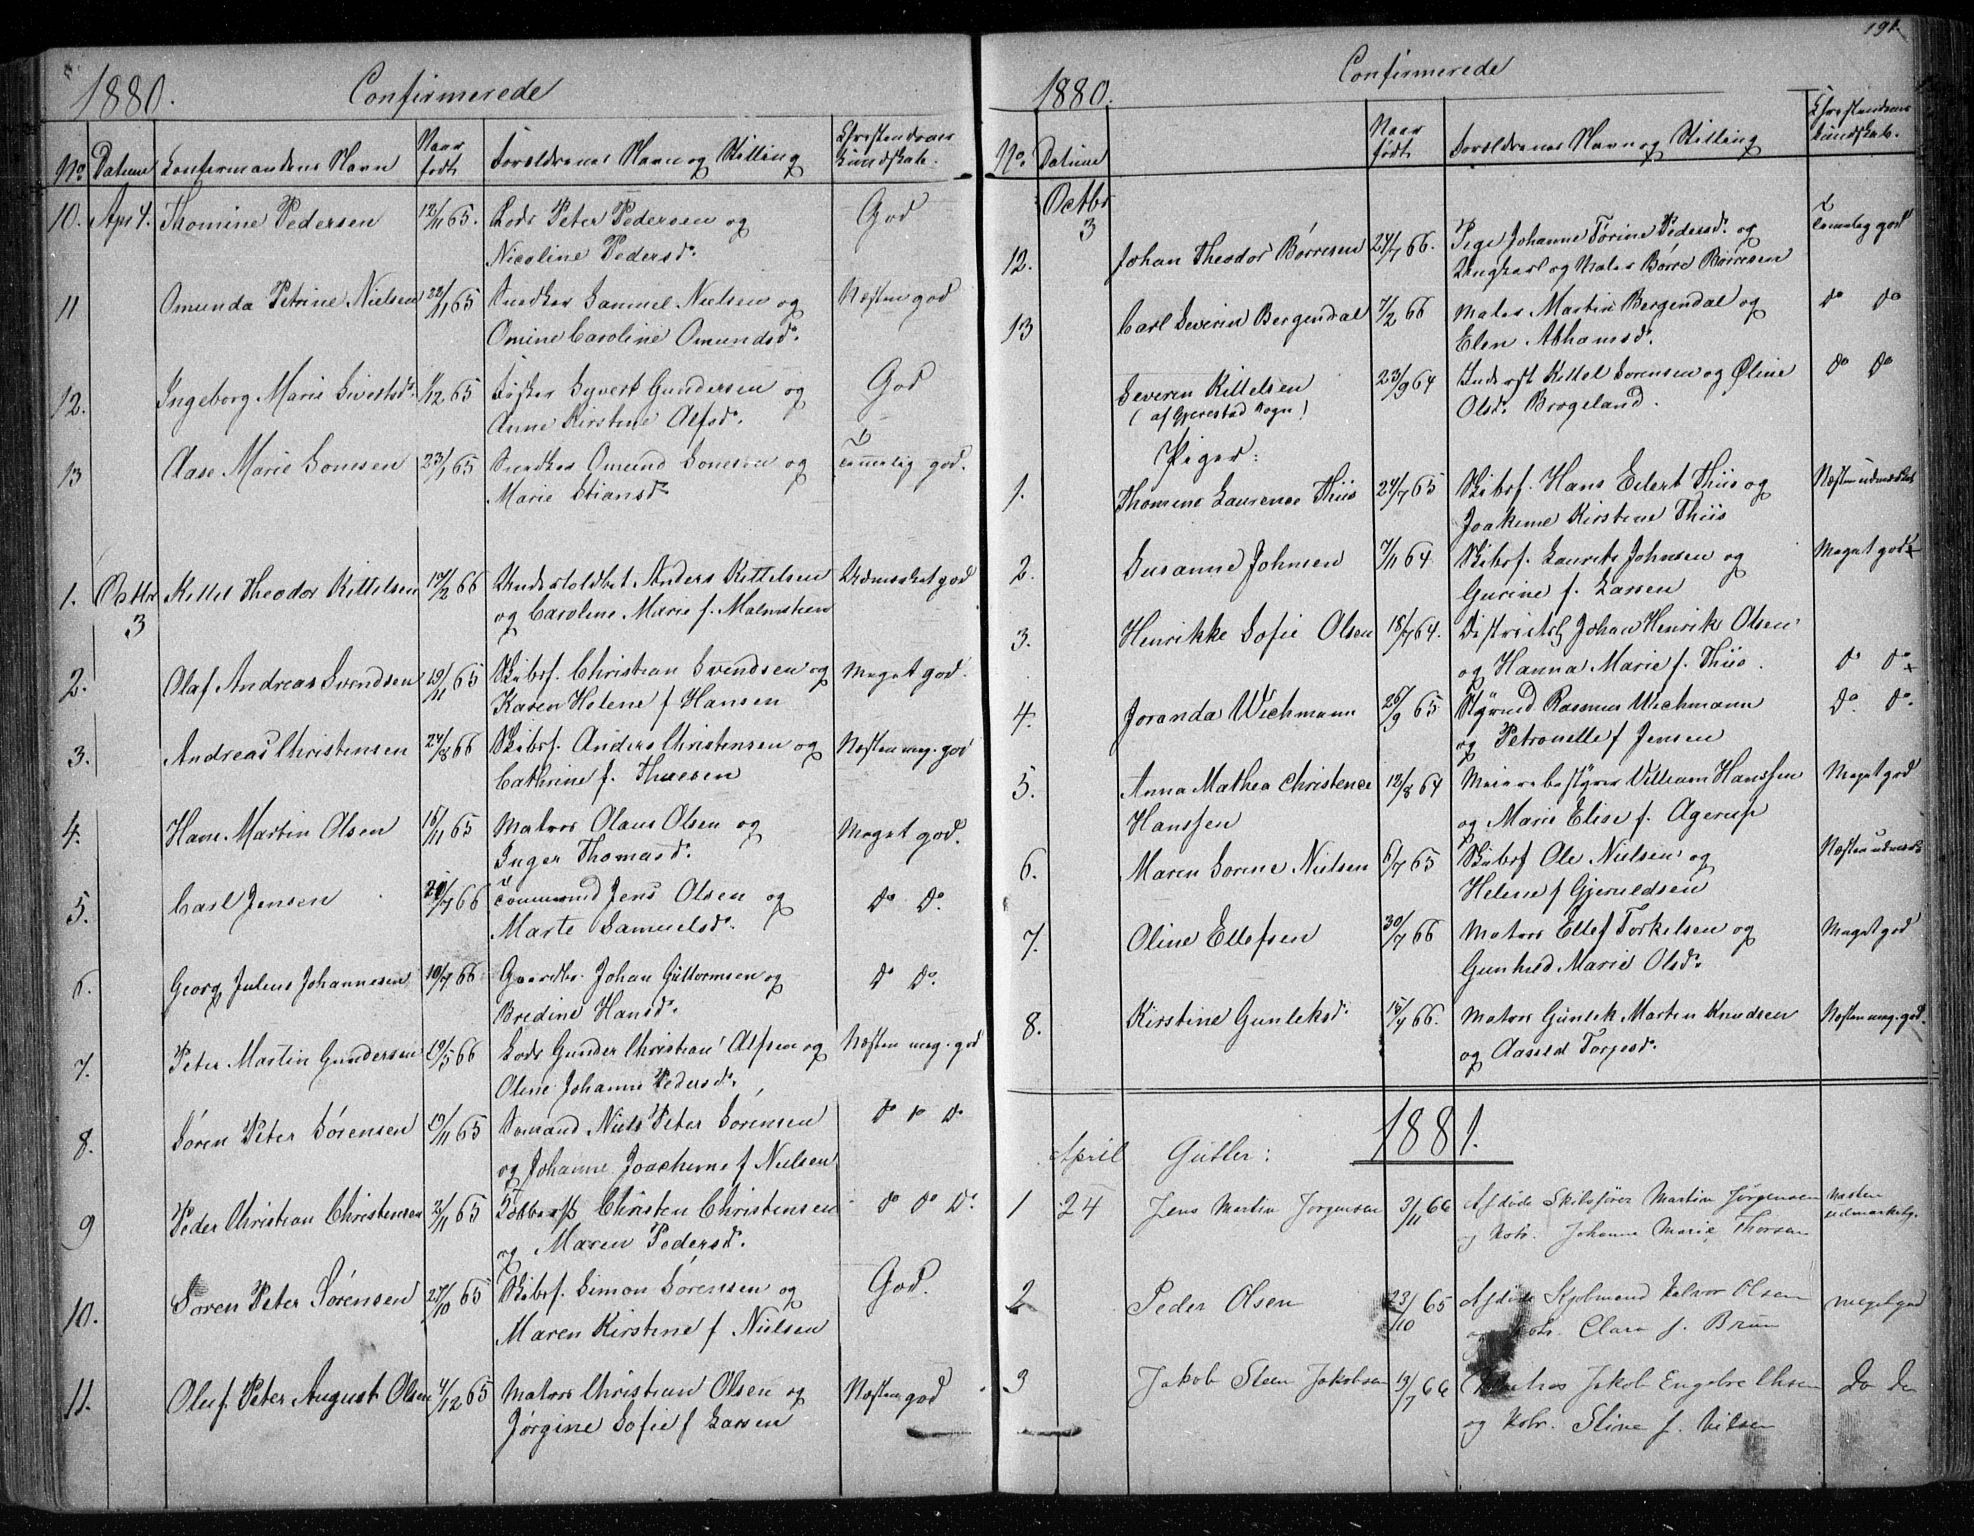 1880. Confirmerede
No Datum Confirmandens Navn Naar født Foreldrenes Navn og Stilling Christendoms Kundskab.
10. Apr 4. Thomine Pedersen 12/11 65. Lods Peter Pedersen og God
Nicoline Pedersd.
11 Omunda Petrine Nielsen 22/1 65 Snedker Samuel Nielsen og Næsten god
Omine Caroline Omundsd.
12. Ingeborg Marie Sivertsd. 1/12 65 Fisker Syvert Gundersen og God
Anne Kirstine Alfsd.
13 Aase Marie Sonesen 23/1 65 Snedker Omund Sonesen og Temmelig god.
Marie Stiansd.
1. Octbr 3 Kittel Theodor Kittelsen 17/2 66 Undertoldbet Anders Kittelsen Udmærket god
og Caroline Marie f. Malmstien
2. Olaf Andreas Svendsen 19/11 65 Skibsf. Christian Svendsen og Meget god.
Karen Helene f Hansen
3. Andreas Christensen 24/8 66 Skibsf. Anders Christensen og Næsten meg. god
Cathrine f. Thuesen
4. Hans Martin Olsen 15/11 65 Matros Olaus Olsen og Meget god.
Inger Thomasd.
5. Carl Jensen 20/7 66 Tømmermd Jens Olsen og Do Do.
Marte Samuelsd.
6. Georg Julius Johannesen 10/7 66 Gaardbr. Johan Guttormsen og Do Do.
Bredine Hansd.
7. Peter Martin Gundersen 19/5 66 Lods Gunder Christian Alfsen og Næsten meg. god
Oline Johanne Pedersd.
8. Sören Peter Sörensen 19/11 65 Sømand Niels Peter Sørensen Do Do Do
og Johanne Joachime f Nielsen
9 Peder Christian Christensen 2/11 65 Christen Christensen Do Do Do.
og Maren Pedersd.
10. Soren Peter Sörensen 27/10 65 Skibsf. Simon Sørensen og God.
Maren Kirstine f Nielsen
11. Oluf Peter August Olsen 4/12 65 Matros Christian Olsen og Næsten god
Jørgine Sofie f Larsen
191.
1880. Confirmerede
No. Datum Naar født Foreldrenes Navn og Stilling Christendoms Kundskab.
Octbr
3
12. Johan Theodor Börresen 24/7 66. Pige Johanne Torine Pedersd. og Temmelig god
Ungkarl og Matros Børre Børresen
13 Carl Severin Bergendal 7/2 66 Matros Martin Bergendal og Do Do
Elen Abhamsd.
Severin Kittelsen 23/9 64 Kittel Sorensen og Øline Do Do
(af Gjerestad Sogn) Olsd. Brogeland.
Piger:
1. Thomine Laurence Thiis 24/7 65 Skibsf. Hans Eilert Thiis og Næsten udmærket
Joakime Kirstine Thiis
2. Susanne Johnsen 7/11 64 Skibsf. Laurits Johnsen og Meget god
Gurine f. Larsen
3. Henrikke Sofie Olsen 18/7 64. Johan Henrik Olsen
og Hanna Marie f. Thiis. Do Do
4. Joranda Wichmann 26/9 65 Styrmd Rasmus Wichmann Do. Do.
og Petronelle f Jensen
5. Anna Mathea Christence 12/8 64 Meieribestyrer Villiam Hanssen Meget god
Hanssen og Marie Elise f. Agerup
6. Maren Sorine Nielsen 6/7 65 Skibsf Ole Nielsen og Næsten udmærk
Helene f Gjeruldsen
7. Oline Ellefsen 30/7 66 Matros Ellef Torkelsen og Meget god
Gunhild Marie Olsd.
8. Kirstine Gunleksd. 15/7 66. Matros Gunlek Morten Knudsen Næsten meg. god.
og Aaseld Torjesd.
1881.
April Gutter:
1 24 Jens Martin Jørgensen 3/11 66 Afdøde Skibsfører Martin Jørgensen Næsten
og Kone. Johanne Marie Thorsen udmærket g.
2 Peder Olsen 23/10 65 Afdøde Halvor Olsen meget god
og Kone. Clara f. Brun
3 Jakob Steen Jakobsen 19/7 66 Matros Jakob Engebrethsen Do Do
og Kone. Stine f. Nilsen